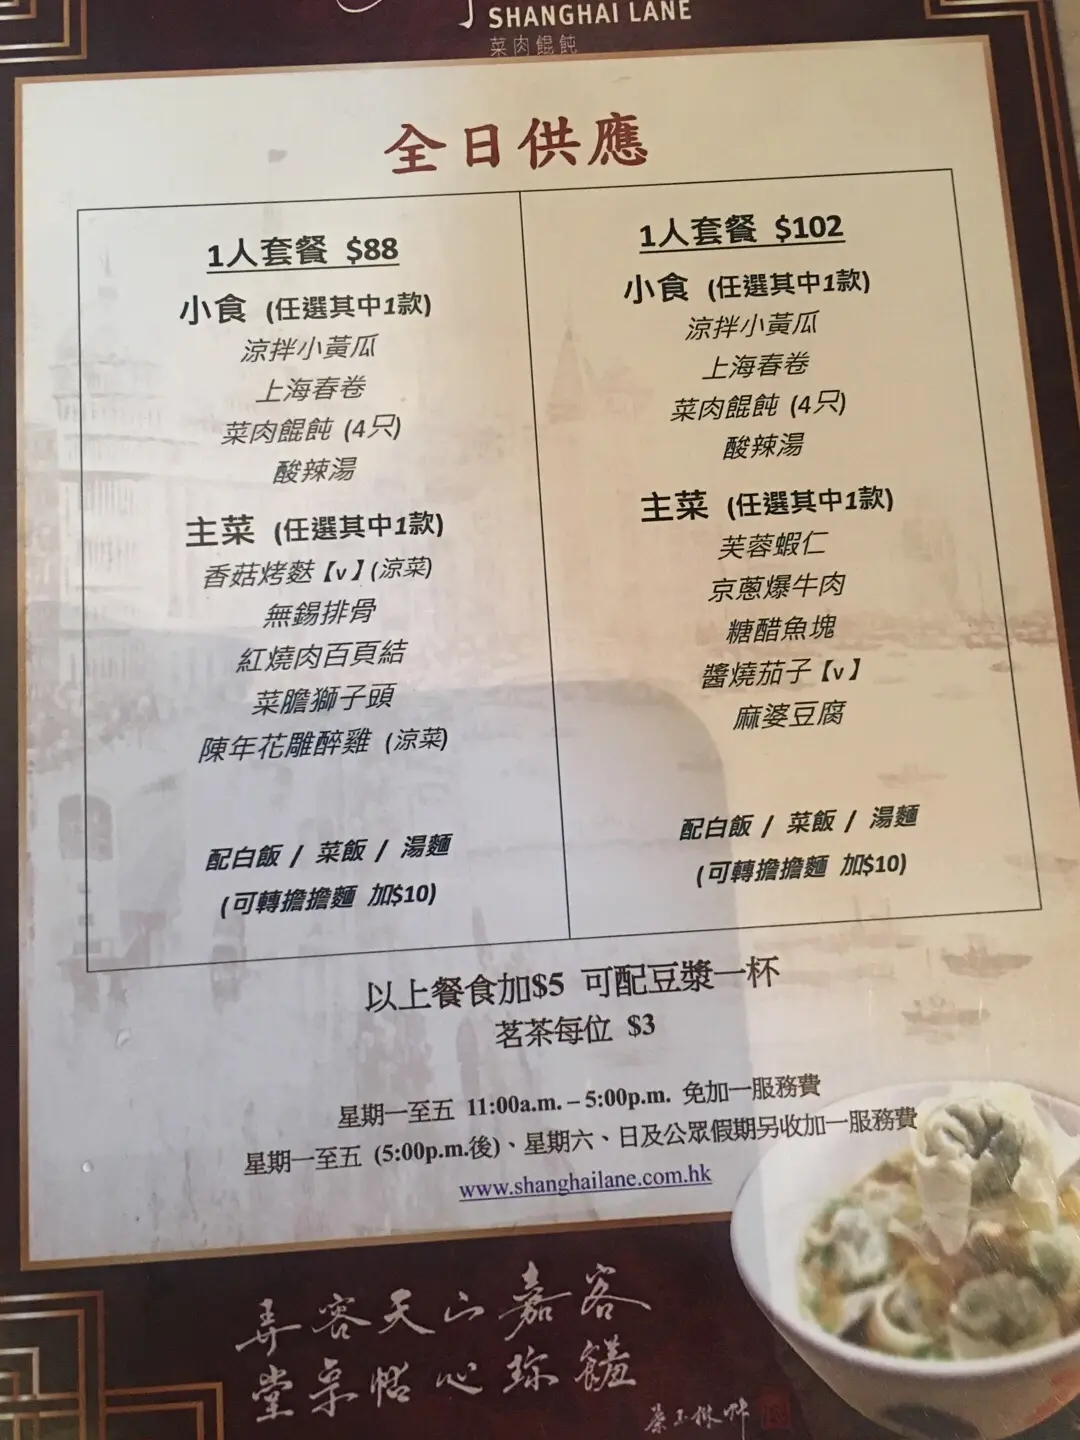 SHANGHAI LANE
菜肉餛飩
全日供應
1人套餐 $88
小食 (任選其中1款)
涼拌小黃瓜
上海春卷
菜肉餛飩 (4只)
酸辣湯
主菜 (任選其中1款)
香菇烤麩【v】(涼菜)
無錫排骨
紅燒肉百頁結
菜膽獅子頭
陳年花雕醉雞 (涼菜)
配白飯 / 菜飯 / 湯麵
(可轉擔擔麵 加$10)
1人套餐 $102
小食 (任選其中1款)
涼拌小黃瓜
上海春卷
菜肉餛飩 (4只)
酸辣湯
主菜 (任選其中1款)
芙蓉蝦仁
京蔥爆牛肉
糖醋魚塊
醬燒茄子【v】
麻婆豆腐
配白飯 / 菜飯 / 湯麵
(可轉擔擔麵 加$10)
以上餐食加$5 可配豆漿一杯
茗茶每位 $3
星期一至五 11:00a.m. – 5:00p.m. 免加一服務費
星期一至五 (5:00p.m.後)、星期六、日及公眾假期另收加一服務費
www.shanghailane.com.hk